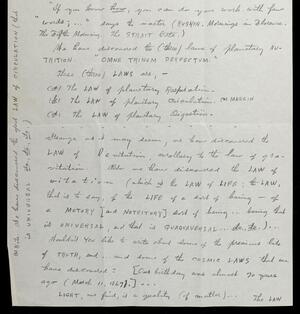 "If you know how, you can do your work with few
words; ..." says the master (RUSKIN. Mornings in Florence.
The Fifth Morning. The STRAIT GATE.)
We have discovered the (three) laws of planetary NU-
TRITION. "OMNE TRINUM PERFECTUM."
These (three) LAWS are, –
(A) The LAW of planetary Respiration.
(B) The LAW of planetary Circulation. MARGIN
(C) The LAW of planetary Digestion.
Strange as it may seem, we have discovered the
LAW of , corollary to the law of gra-
vitation. we have discovered the LAW of
(which is the LAW of LIFE; the LAW,
that is to say, of the LIFE of a sort of being – of
a MOTARY [and NOTATORY] sort of being ... being that
is UNIVERSAL, and that is QUAQUAVERSAL ... &c. &c.) ...
Wouldn't You like to write about some of the precious bits
of TRUTH, and ... and some of the COSMIC LAWS that we
have discovered? [Our birthday was almost 70 years
ago (March 11, 1867).] ...
LIGHT, we find, is a quality (of matter) ... The LAW
We have discovered the LAW of CIRCULATION (that
is UNIVERSAL &c. &c. &c.)